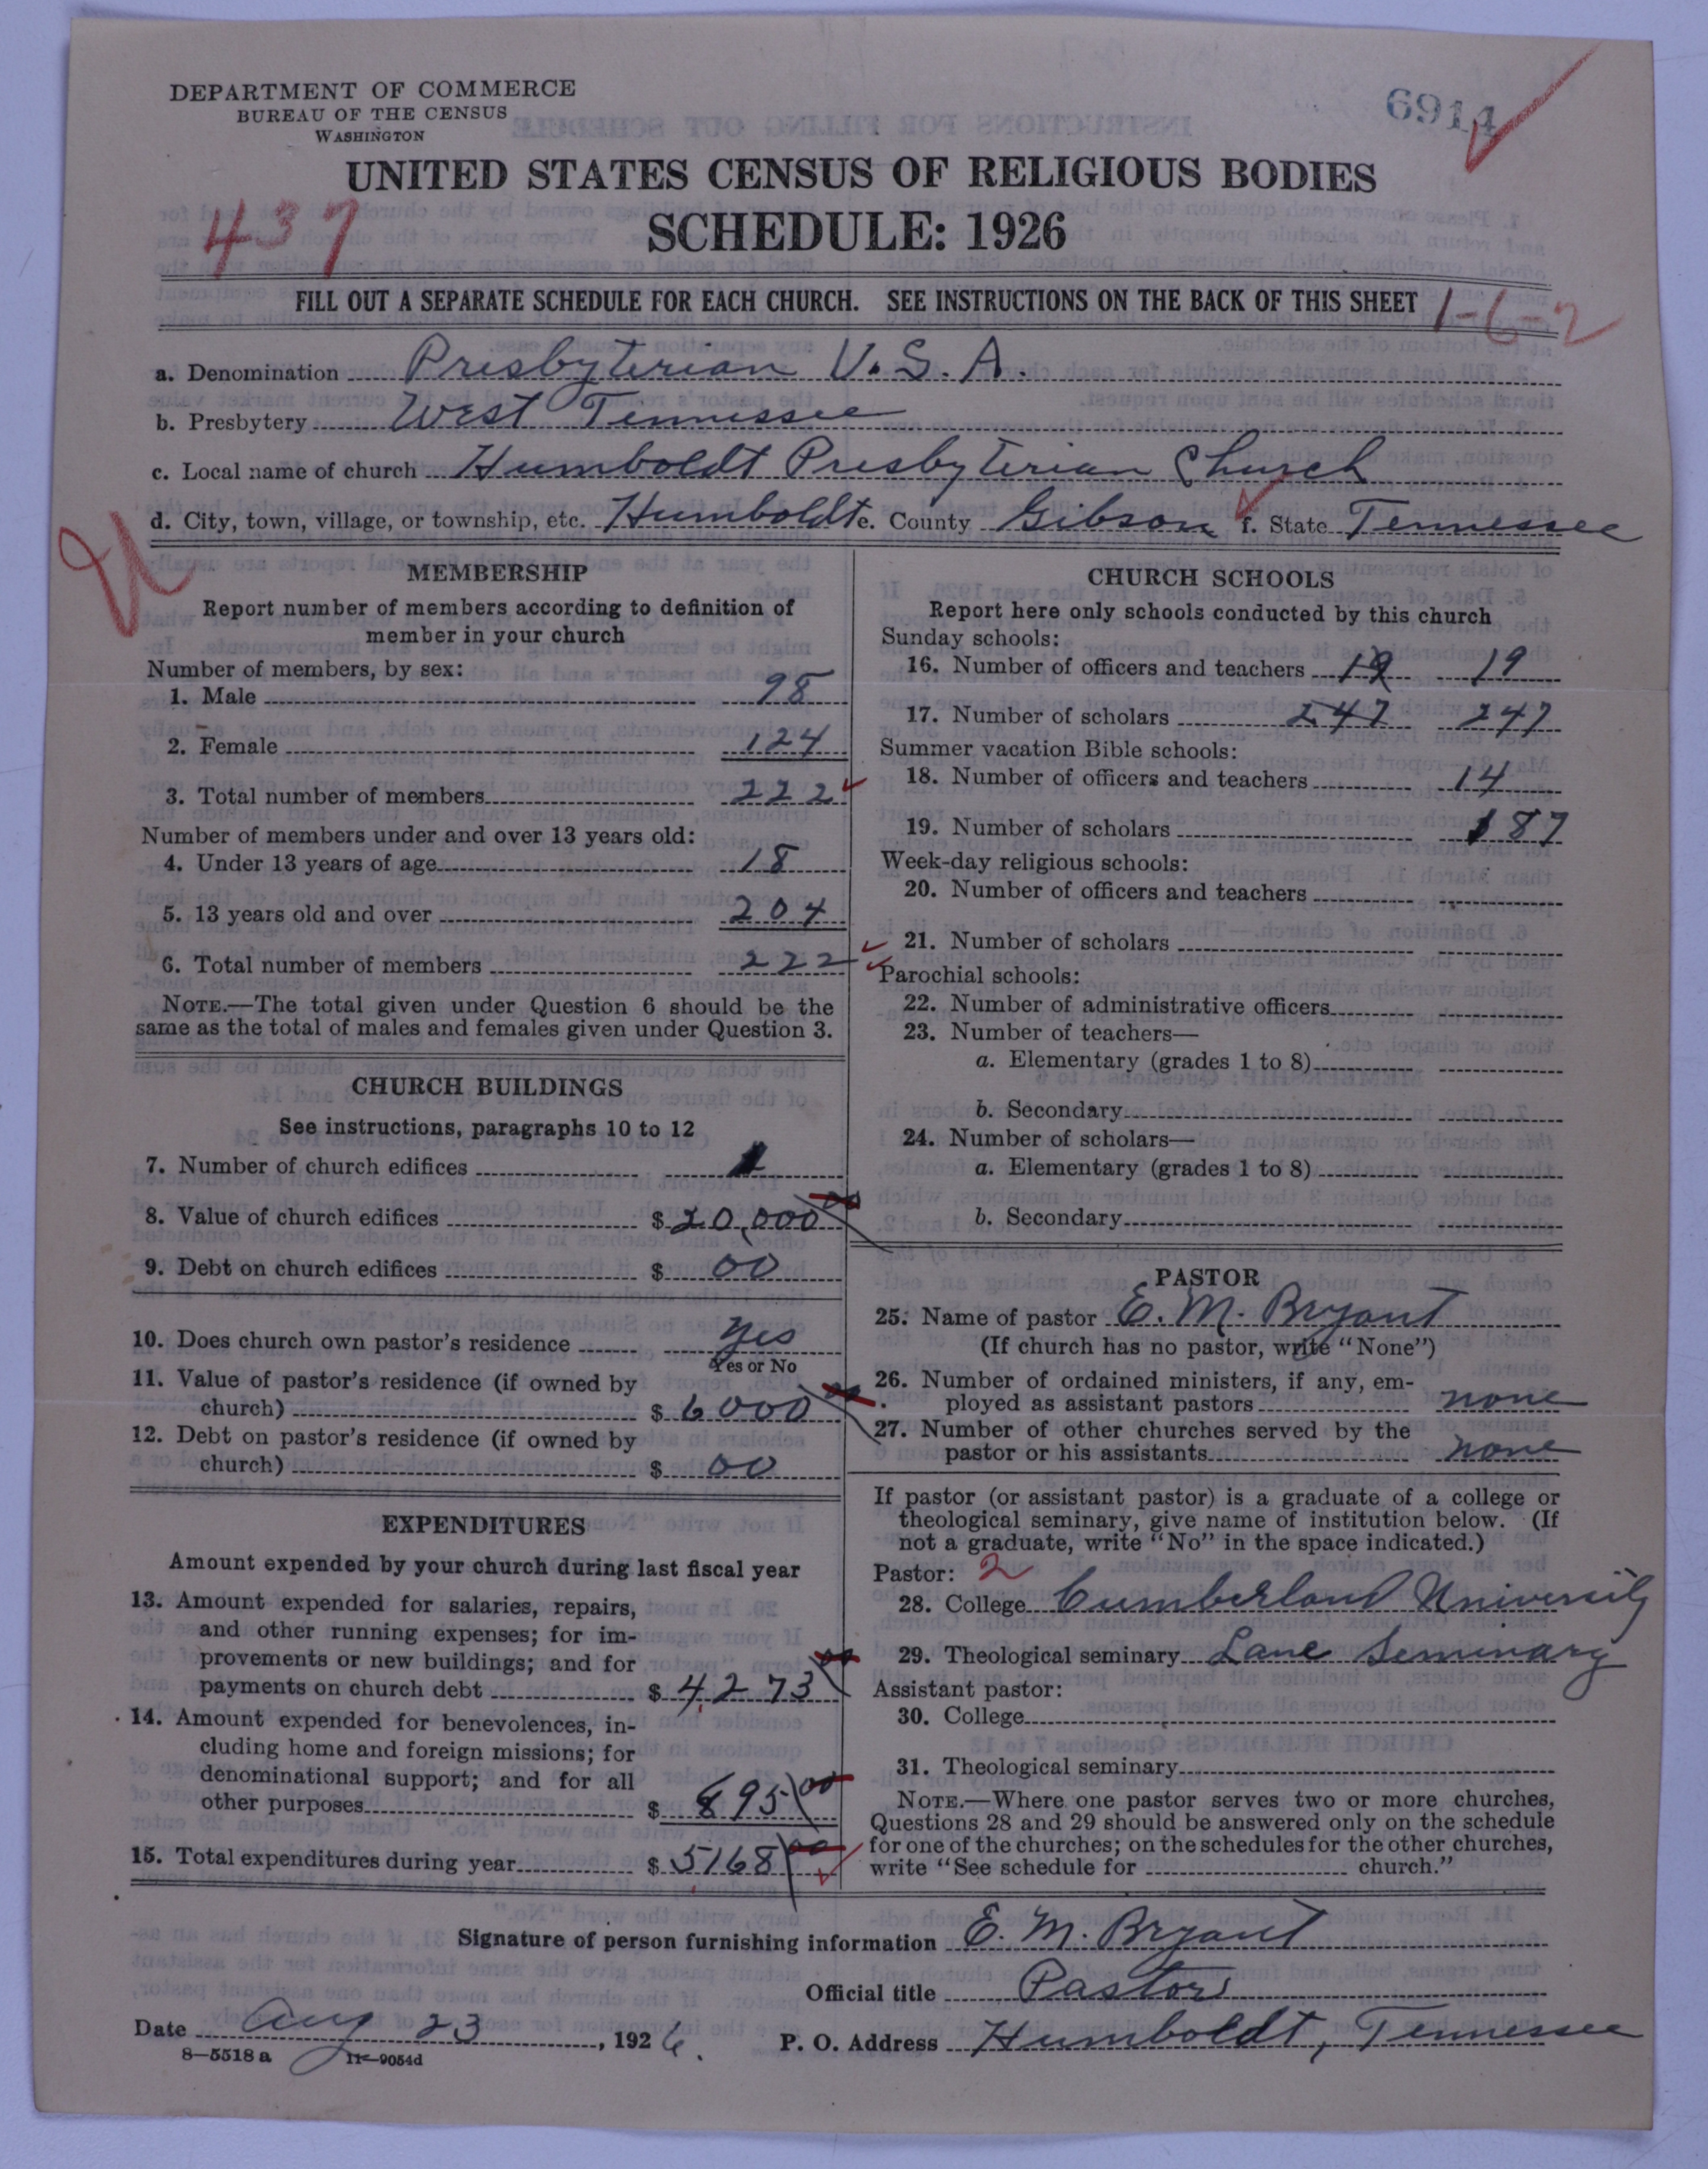 DEPARTMENT OF COMMERCE
BUREAU OF THE CENSUS
WASHINGTON
6914
UNITED STATES CENSUS OF RELIGIOUS BODIES
SCHEDULE: 1926
437
FILL OUT A SEPARATE SCHEDULE FOR EACH CHURCH. SEE INSTRUCTIONS ON THE BACK OF THIS SHEET
1-6-2
a. Denomination Presbyterian U.S.A.
b. Presbytery West Tennessee
c. Local name of church Humboldt Presbyterian Church
d. City, town, village, or township, etc. Humboldt e. County Gibson f. State Tennessee
MEMBERSHIP
Report number of members according to definition of
member in your church
Number of members, by sex:
1. Male 98
2. Female 124
3. Total number of members 222
Number of members under and over 13 years old:
4. Under 13 years of age 18
5. 13 years old and over 204
6. Total number of members 222
NOTE.—The total given under Question 6 should be the
same as the total of males and females given under Question 3.
CHURCH BUILDINGS
See instructions, paragraphs 10 to 12
7. Number of church edifices 1
8. Value of church edifices $ 20,000 00
9. Debt on church edifices $ 00
10. Does church own pastor's residence Yes
Yes or No
11. Value of pastor's residence (if owned by
church) $ 6000 00
12. Debt on pastor's residence (if owned by
church) $ 00
EXPENDITURES
Amount expended by your church during last fiscal year
13. Amount expended for salaries, repairs,
and other running expenses; for im-
provements or new buildings; and for
payments on church debt $ 4273 00
14. Amount expended for benevolences, in-
cluding home and foreign missions; for
denominational support; and for all
other purposes $ 895 00
15. Total expenditures during year $ 5168 00
CHURCH SCHOOLS
Report here only schools conducted by this church
Sunday schools:
16. Number of officers and teachers 19 19
17. Number of scholars 247 247
Summer vacation Bible schools:
18. Number of officers and teachers 14
19. Number of scholars 187
Week-day religious schools:
20. Number of officers and teachers
21. Number of scholars
Parochial schools:
22. Number of administrative officers
23. Number of teachers—
a. Elementary (grades 1 to 8)
b. Secondary
24. Number of scholars—
a. Elementary (grades 1 to 8)
b. Secondary
PASTOR
25. Name of pastor E. M. Bryant
(If church has no pastor, write "None")
26. Number of ordained ministers, if any, em-
ployed as assistant pastors none
27. Number of other churches served by the
pastor or his assistants none
If pastor (or assistant pastor) is a graduate of a college or
theological seminary, give name of institution below. (If
not a graduate, write "No" in the space indicated.)
Pastor: 2
28. College Cumberland University
29. Theological seminary Lane Seminary
Assistant pastor:
30. College
31. Theological seminary
NOTE.—Where one pastor serves two or more churches,
Questions 28 and 29 should be answered only on the schedule
for one of the churches; on the schedules for the other churches,
write "See schedule for church."
Signature of person furnishing information E. M. Bryant
Official title Pastor
Date Aug 23, 1926. P. O. Address Humboldt, Tennessee
8—5518 a 11—9054d